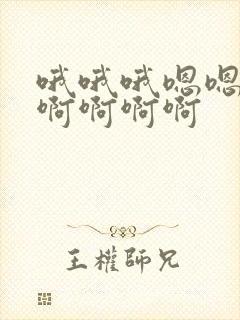 哦哦哦嗯嗯
啊啊啊啊
王權師兄